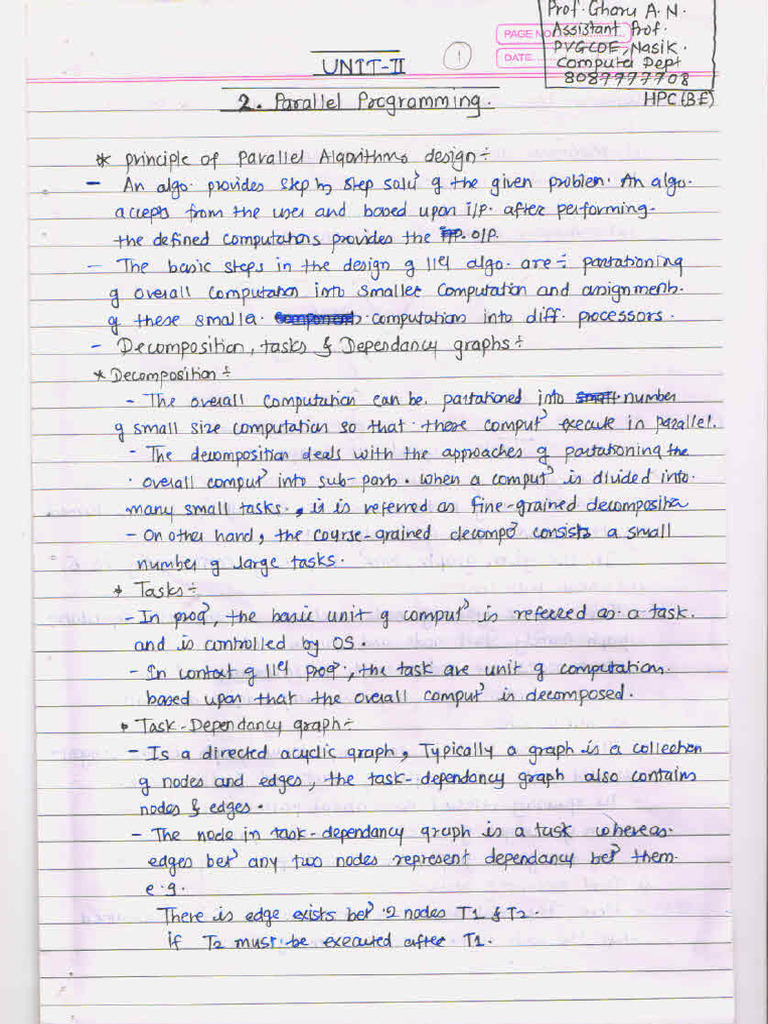 Prof. Gharu A. N.
Assistant Prof.
PVGCOE, Nasik.
Computer Dept
8087777708
HPC (BE)
PAGE No
DATE
1
UNIT-II
2. Parallel Programming.
* principle of Parallel Algorithms design ÷
- An algo. provides step by step soluⁿ of the given problem. An algo.
accepts from the user and based upon i/p. after performing
the defined computations provides the o/p.
- The basic steps in the design of ||el algo. are ÷ partationing
of overall computation into smaller computation and assignments.
of these smaller computation into diff. processors.
- Decomposition, tasks & Dependancy graphs ÷
* Decomposition ÷
- The overall computation can be partationed into number
of small size computation so that these computⁿ execute in parallel.
- The decomposition deals with the approaches of partationing the
overall computⁿ into sub-parts. when a computⁿ is divided into
many small tasks, it is referred as fine-grained decomposition
- On other hand, the course-grained decompoⁿ consists a small
number of large tasks.
* Tasks ÷
- In progⁿ, the basic unit of computⁿ is referred as a task
and is controlled by OS.
- In context of ||el progⁿ, the task are unit of computations.
based upon that the overall computⁿ is decomposed.
* Task-Dependancy graph ÷
- Is a directed acyclic graph, Typically a graph is a collection
of nodes and edges, the task-dependancy graph also contains
nodes & edges.
- The node in task-dependancy graph is a task whereas
edges betⁿ any two nodes represent dependancy betⁿ them.
e.g.
There is edge exists betⁿ 2 nodes T1 & T2.
if T2 must be executed after T1.